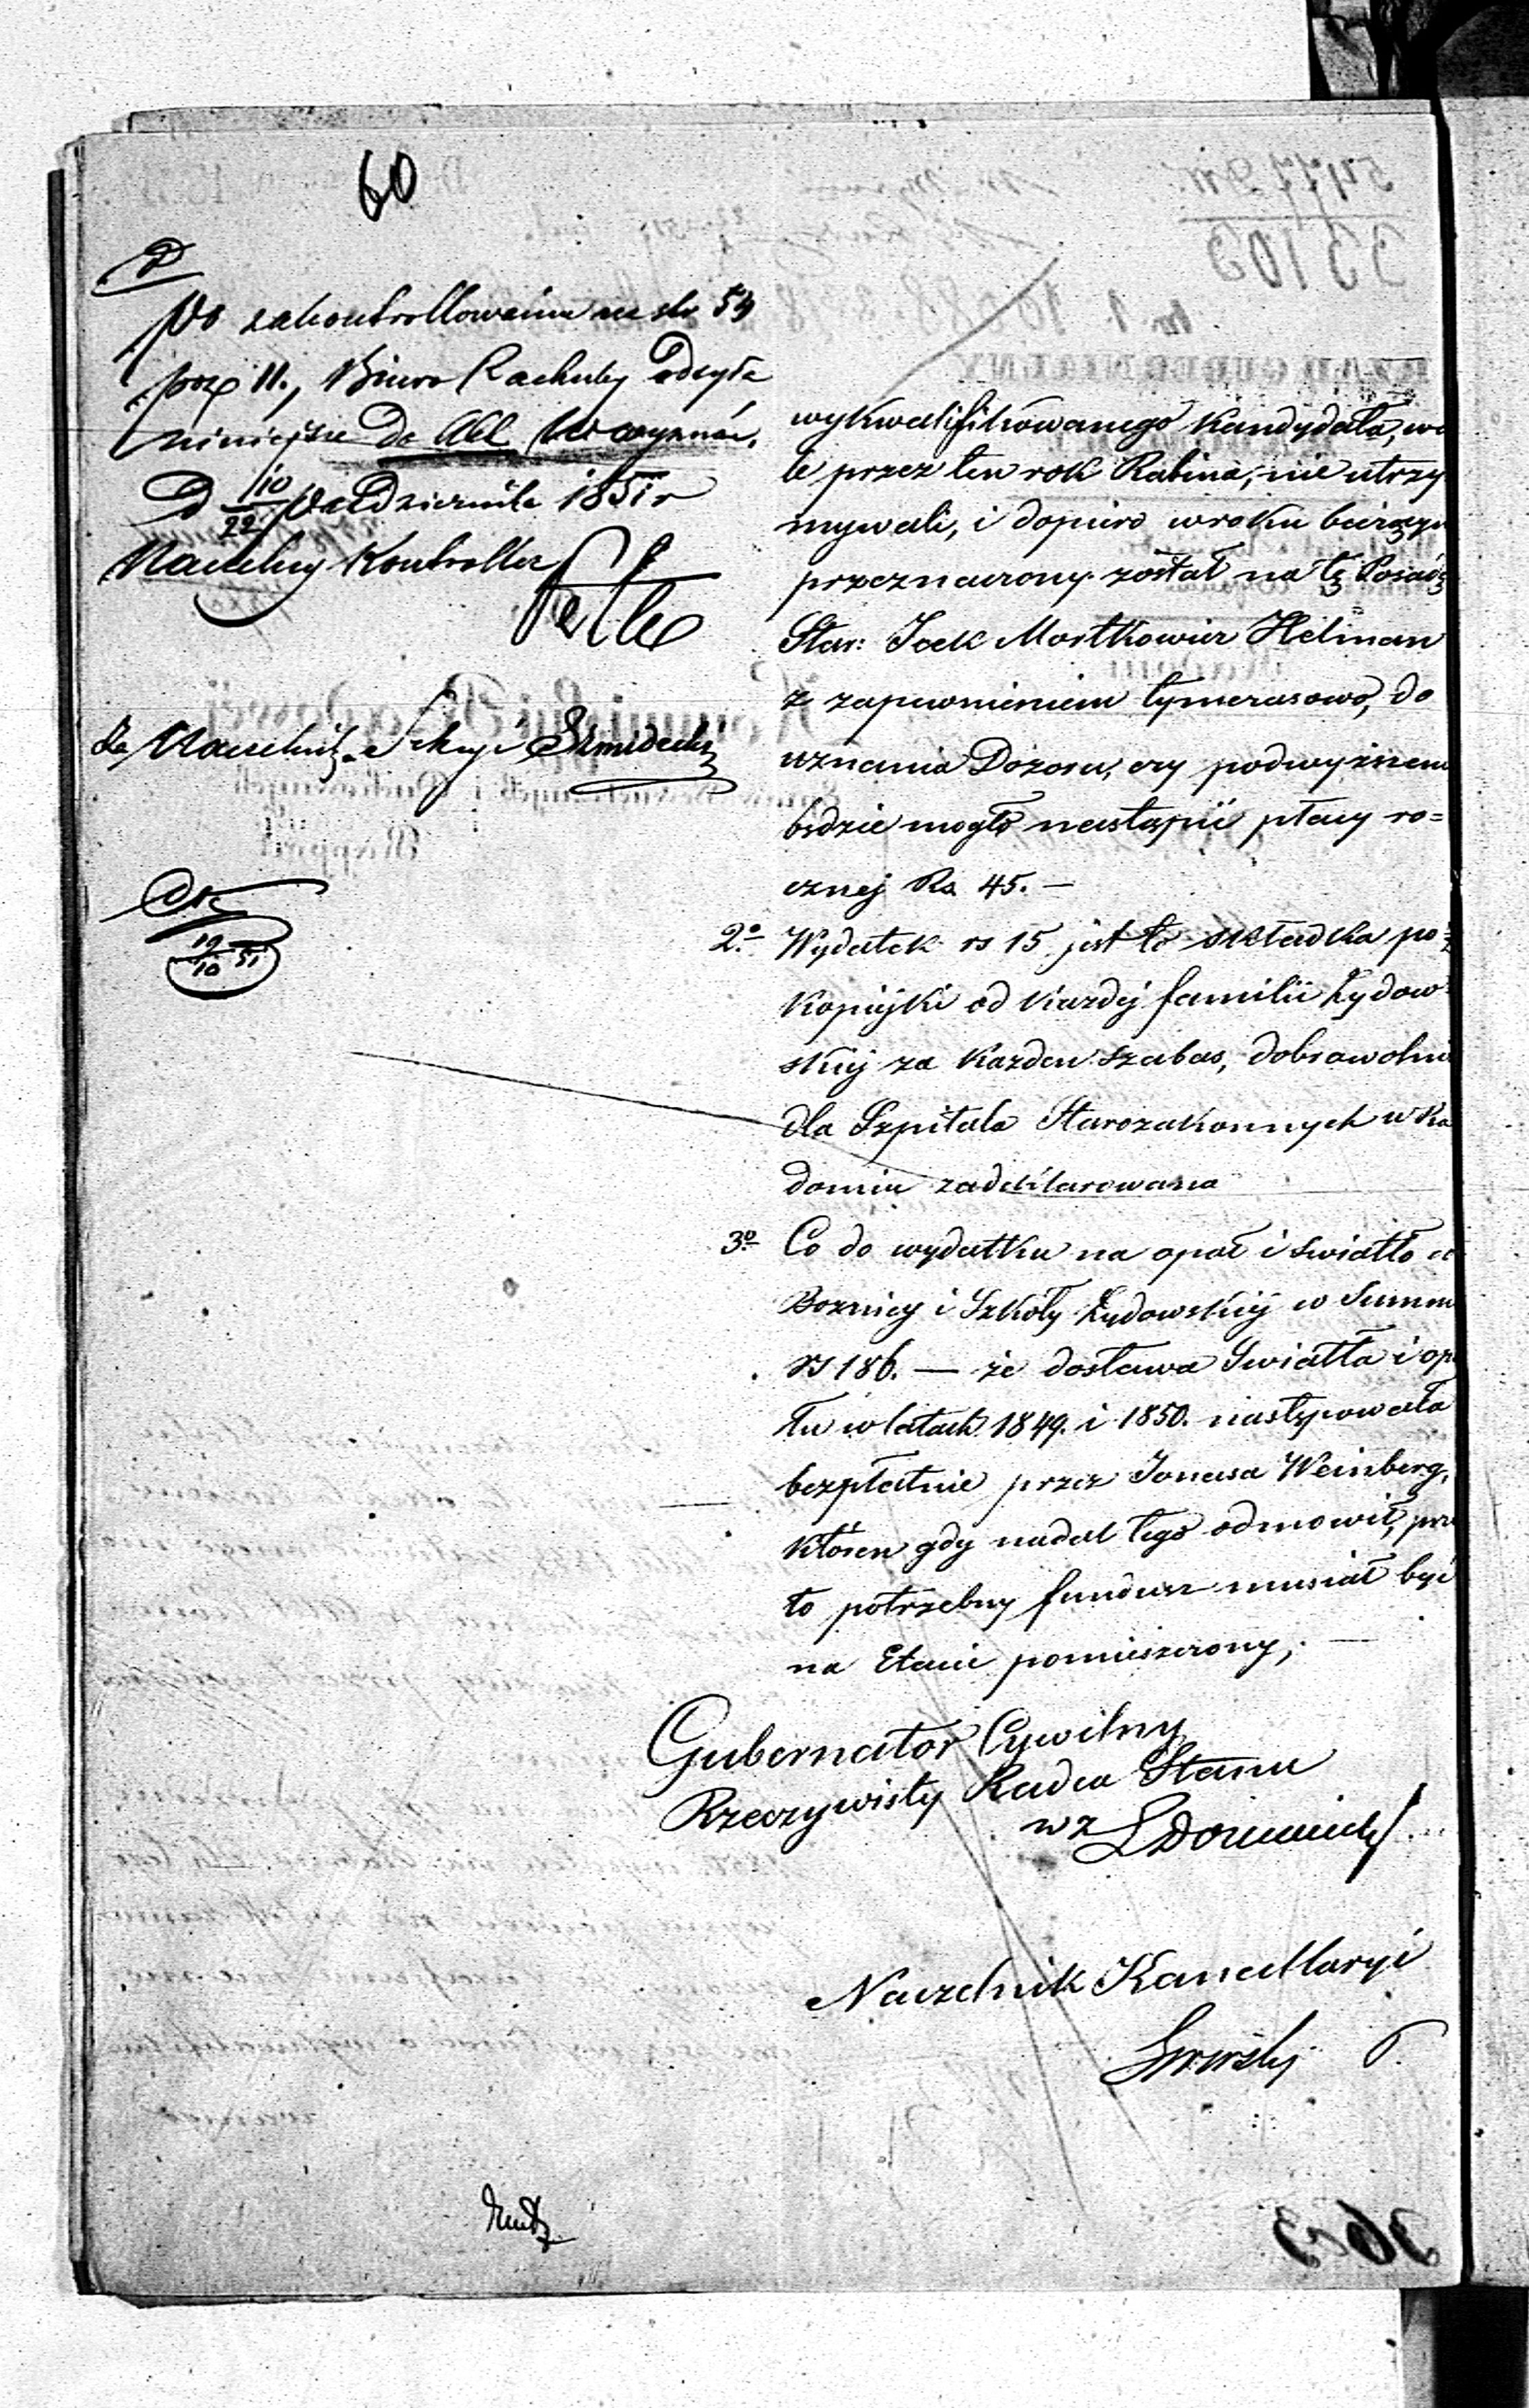 60
Po zakontrollowaniu na str 54
poz 11., Biuro Rachuby odsyła
niniejsze do Wyznań.
D 10/22 Października 1851 r
Naczelny Kontroller
Za Naczelnika Sekcyi
19/10 51
wykwalifikowanego Kandydata,
le przez ten rok Rabina, nie utrzy
mywali, i dopiero w roku bieżącym
przeznaczony został na tę Posadę
Star: Icek Mortkowicz Helman
z zapewnieniem tymczasowo, do
uznania Dozoru, czy podwyższenie
będzie mogło nastąpić płacy ro=
cznej Rs 45. —
2o Wydatek rs 15. jest to składka po
kopiejki od każdej familii Żydow
skiej za każden szabas, dobrowolnie
dla Szpitala Starozakonnych w Ra
domiu zadeklarowana
3o Co do wydatku na opał i światło
Boznicy i Szkoły Żydowskiej w Summie
rs 186. — że dostawa Swiatła i opa
łu w latach 1849. i 1850. następowała
bezpłatnie przez Jonasa Weinberg,
któren gdy nadal tego odmowił, prze
to potrzebny fundusz musiał być
na Etacie pomieszczony, —
Gubernator Cywilny
Rzeczywisty Radca Stanu
wz
Naczelnik Kancellaryi